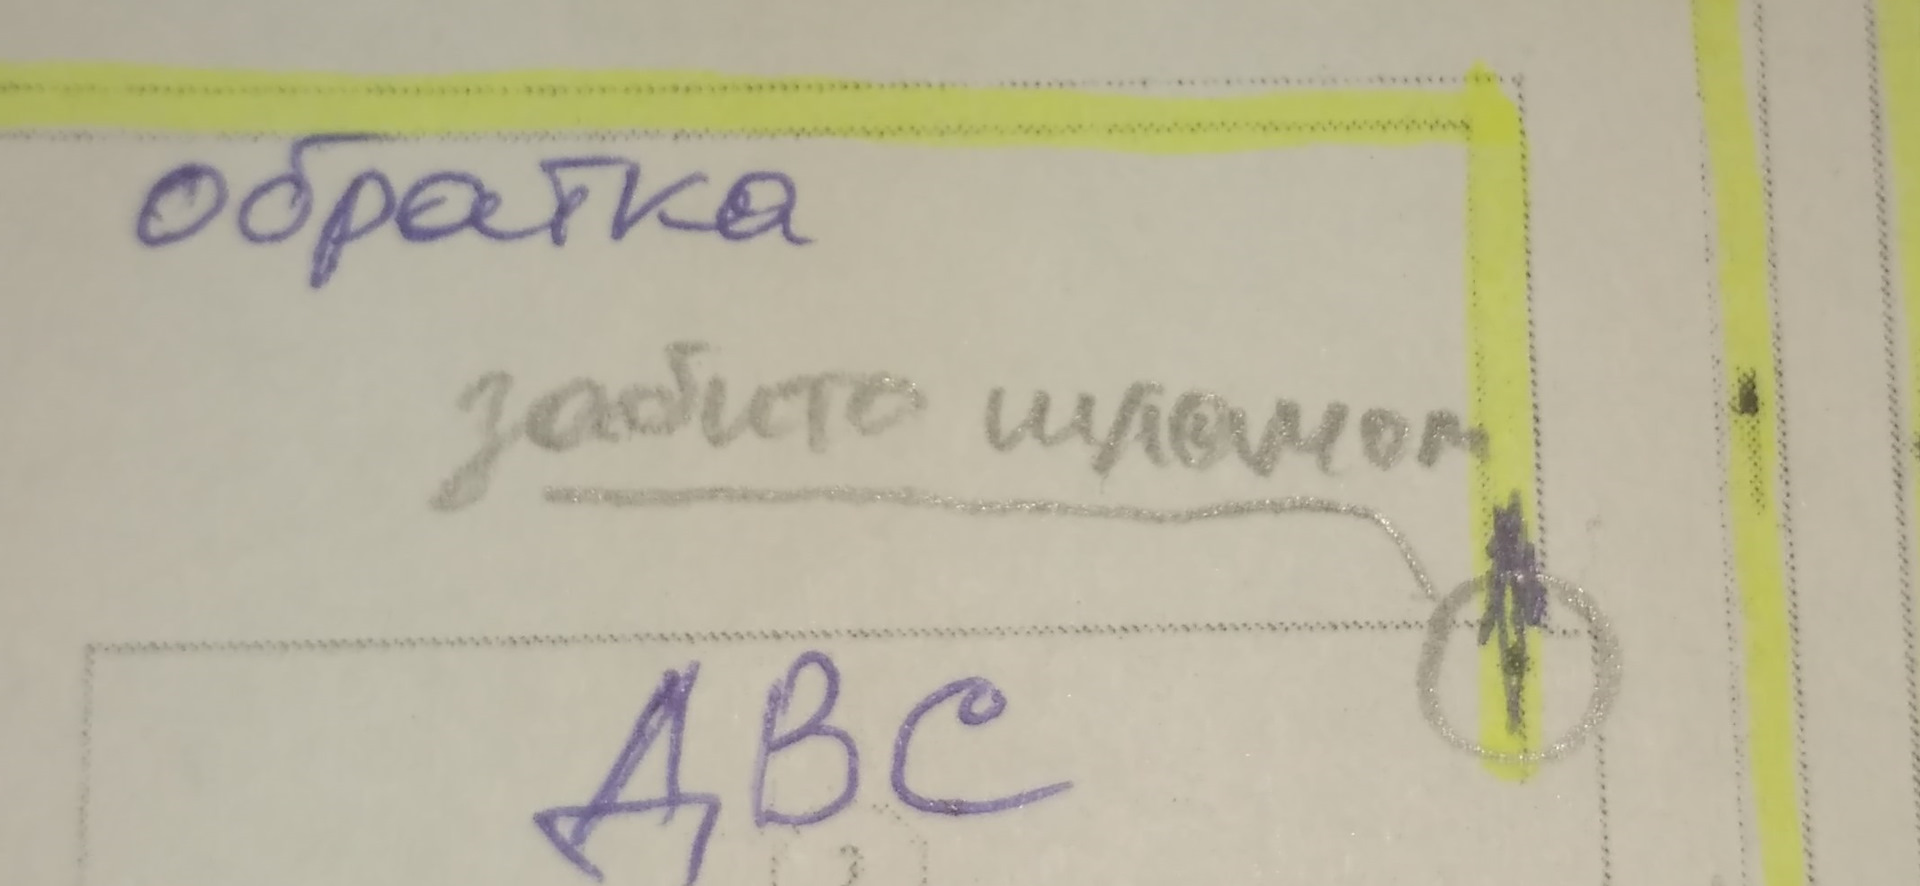 обратка
забито шламом
ДВС